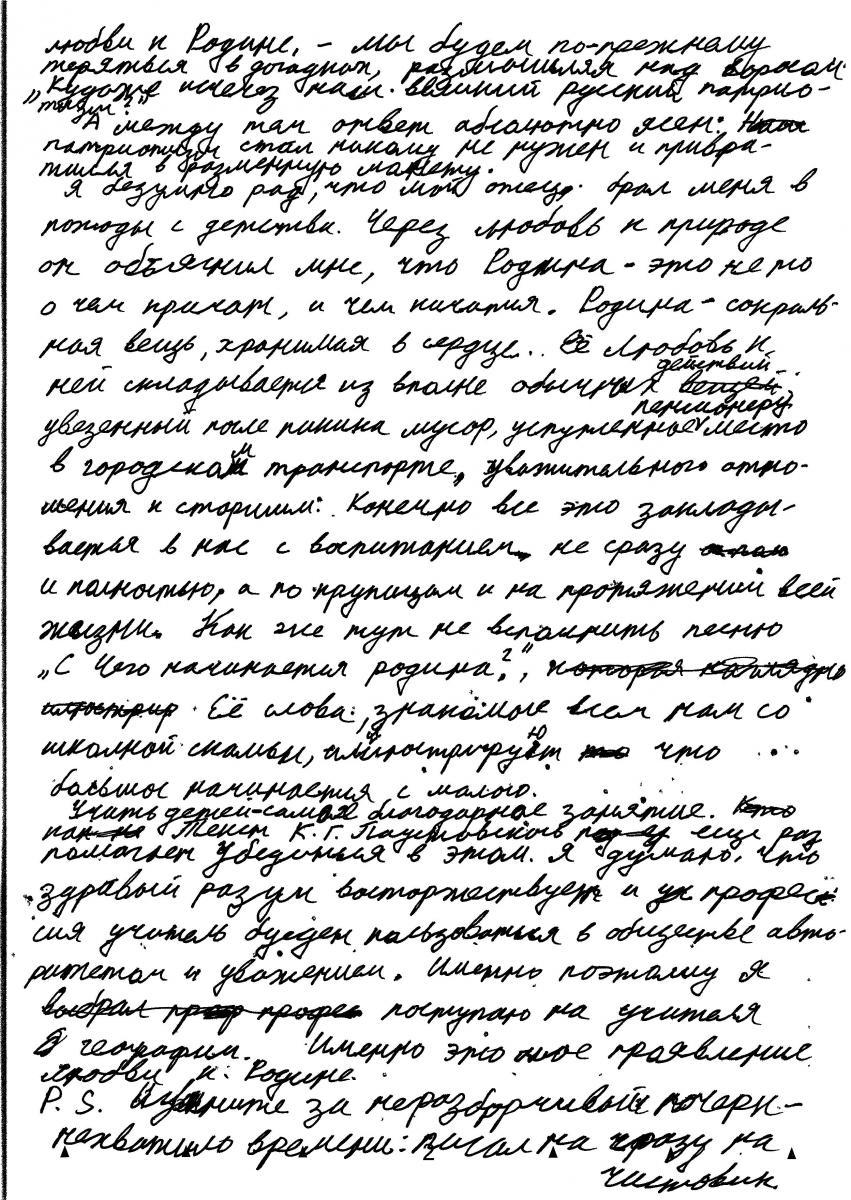 любви к Родине, - мы будем по-прежнему
теряться в догадках, размышляя над вопросом
„Куда же исчез наш великий русский патрио-
тизм?"
А между тем ответ абсолютно ясен:
патриотизм стал никому не нужен и превра-
тился в разменную монету.
Я безумно рад, что мой отец брал меня в
походы с детства. Через любовь к природе
он объяснил мне, что Родина - это не то
о чем кричат, и чем кичатся. Родина - сокраль-
ная вещь, хранимая в сердце... Её любовь к
действий
ней складывается из вполне обычных вещей:
пенсионеру
увезенный после пикника мусор, уступленное место
в городском транспорте, уважительного отно-
шения к старшим. Конечно все это заклады-
вается в нас с воспитанием, не сразу
и полностью, а по крупицам и на протяжений всей
жизни. Как же тут не вспомнить песню
„С чего начинается родина?", которая наглядно
иллюстрир Её слова, знакомые всем нам со
школной скамьи, иллюстрируют то что ...
большое начинается с малого.
Учить детей-самое благодарное занятие. Кто
как не Текст К. Г. Паустовского еще раз
помогает убедиться в этом. Я думаю, что
здравый разум восторжествует и их професс
сия учитель будет пользоваться в обществе авто-
ритетом и уважением. Именно поэтому я
выбрал проф профес поступаю на учителя
географии. Именно это мое проявление
любви к Родине.
P. S. Извините за неразборчивый почерк-
нехватило времени: писал на сразу на
чистовик